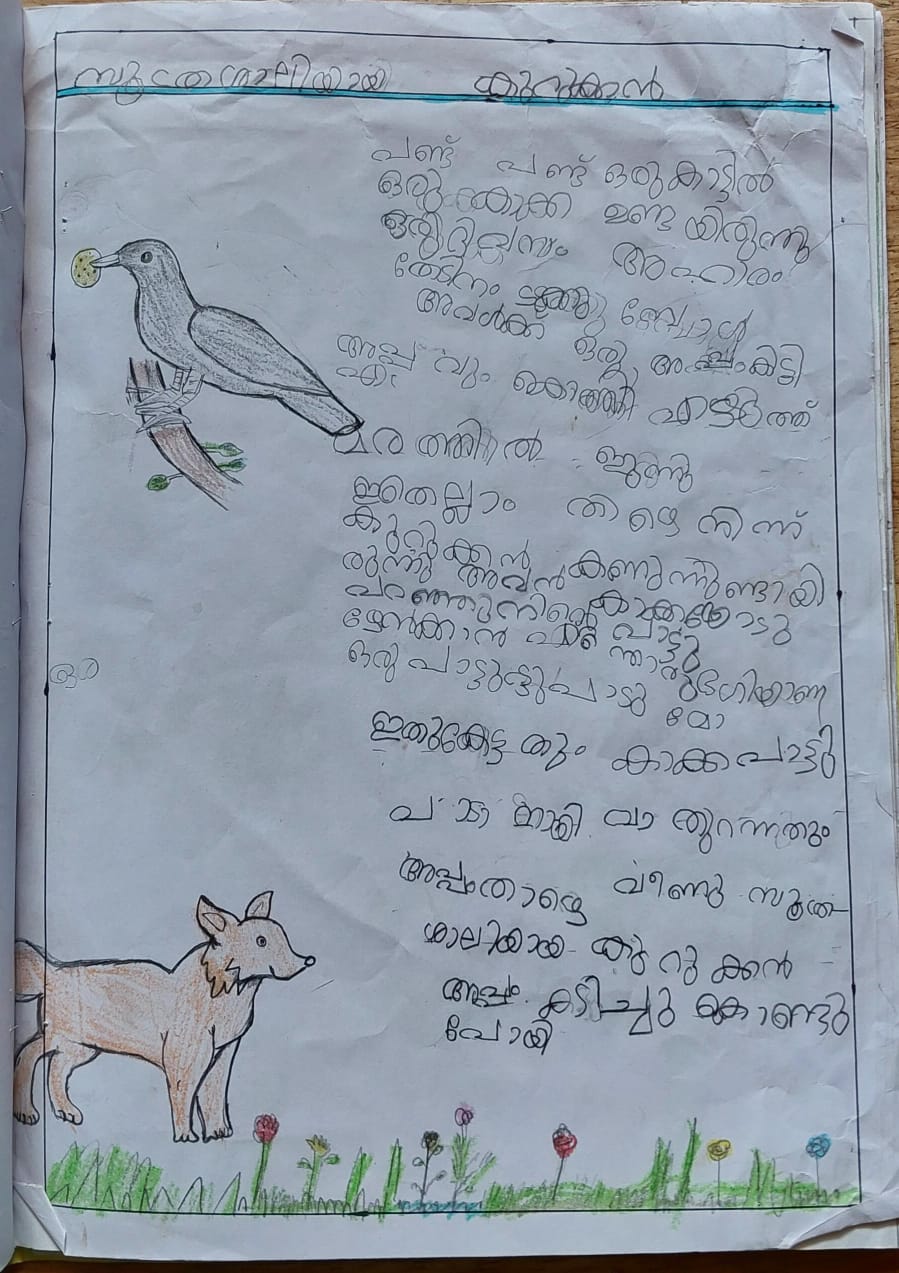 സൂത്രശാലിയായ കുറുക്കൻ
പണ്ട് പണ്ട് ഒരു കാട്ടിൽ
ഒരു കാക്ക ഉണ്ടയിരുന്നു
ഒരു ദിവസം അഹാരം
തേടി
അവൾക്ക് ഒരു അപ്പം കിട്ടി
അപ്പവും കൊത്തി എടുത്ത്
മരത്തിൽ ഇരുന്നു
ഇതെല്ലാം തഴെ നിന്ന്
കുറുക്കൻ കണുന്നുണ്ടായി
രുന്നു അവൻ കാക്കയോടു
പറഞ്ഞു നിന്റെ പാട്ടു
കേൾക്കാൻ എന്ത് ഭഗിയാണ
ഒരു പാട്ടു പാടു
മോ
ഇതു കേട്ടതും കാക്ക പാട്ടു
പാടാനായി വാ തുറന്നതും
അപ്പം താഴെ വീണു സൂത്ര
ശാലിയായ കുറുക്കൻ
അപ്പം കടിച്ചു കൊണ്ടു
പോയി
ഒരു